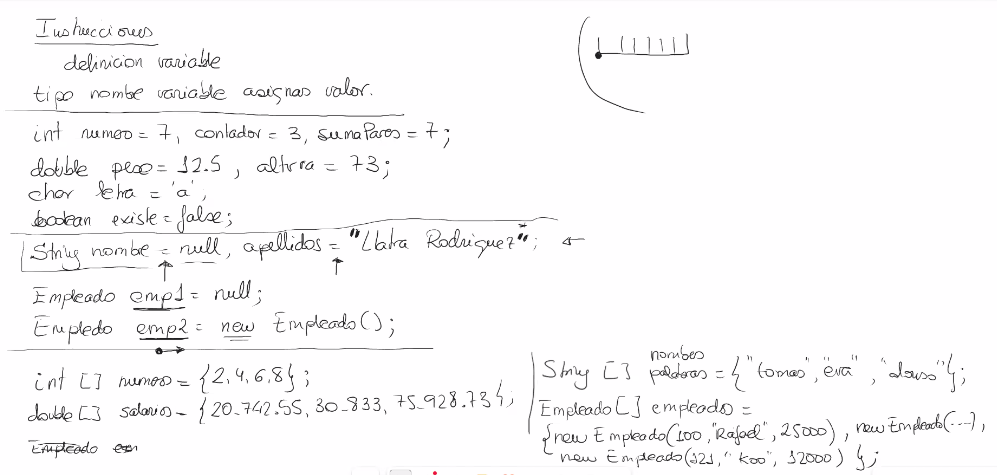 Instrucciones
definicion variable
tipo nombe variable asignas valor.
int numeo = 7, contador = 3, sumaPares = 7;
double peso = 12.5, altura = 73;
char letra = 'a',
boolean existe = false;
String nombe = null, apellidos = "Llatra Rodriguez";
Empleado emp1 = null;
Empledo emp2 = new Empleado();
int [] numeos = {2,4,6,8};
double [] salarios = {20_742.55, 30_833, 75_928.73};
Empleado
nombes
String [] palabras = {"tomas", "eva", "alonso"};
Empleado[] empleado =
{new Empleado(100, "Rafael", 25000), new Empleado(...),
new Empleado(121, "Koo", 12000) };